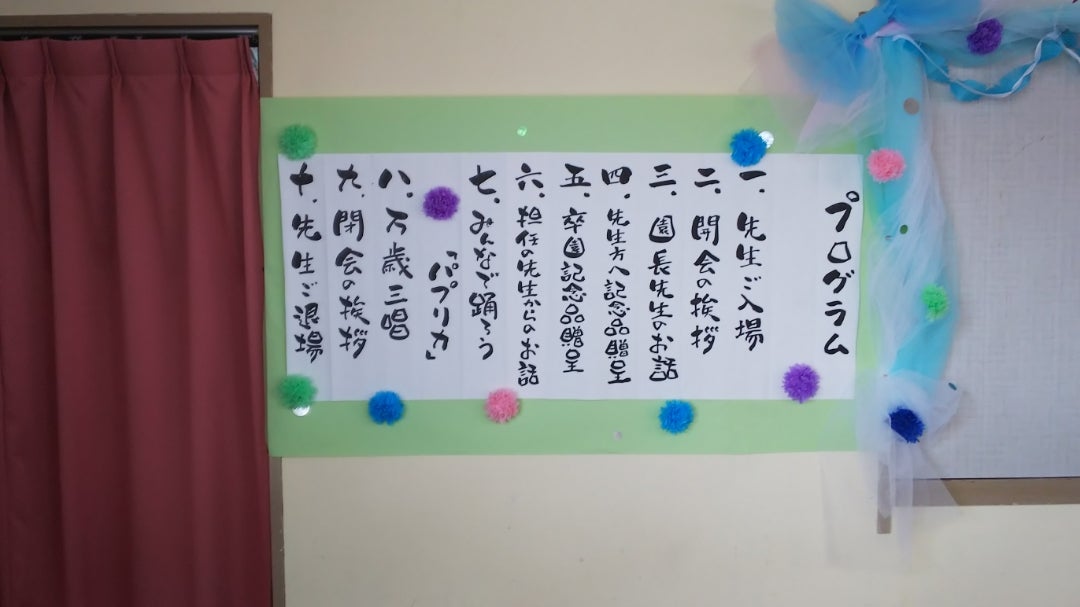 プログラム
一、先生ご入場
二、開会の挨拶
三、園長先生のお話
四、先生方へ記念品贈呈
五、卒園記念品贈呈
六、担任の先生からのお話
七、みんなで踊ろう
「パプリカ」
八、万歳三唱
九、閉会の挨拶
十、先生ご退場